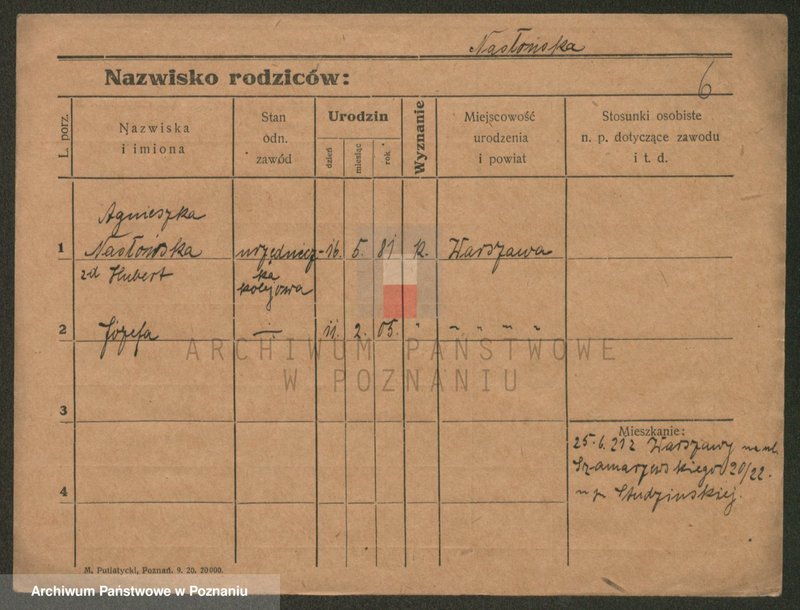 Nasłońska
Nazwisko rodziców:
6
L. porz.
Nazwiska
i imiona
Stan
odn.
zawód
Urodzin
dzień
miesiąc
rok
Wyznanie
Miejscowość
urodzenia
i powiat
Stosunki osobiste
n. p. dotyczące zawodu
i t. d.
Agnieszka
1 Nasłońska urzędnicz- 16. 5. 81 k. Warszawa
zd Hubert ka
kolejowa
2 Józefa — 11. 2. 05. " " " " "
ARCHIWUM PAŃSTWOWE
W POZNANIU
3
Mieszkanie:
25.6.21 z Warszawy na ul.
Szamarzewskiego 20/22.
u p. Studzinskiej.
4
M. Putiatycki, Poznań. 9. 20. 20000.
Archiwum Państwowe w Poznaniu